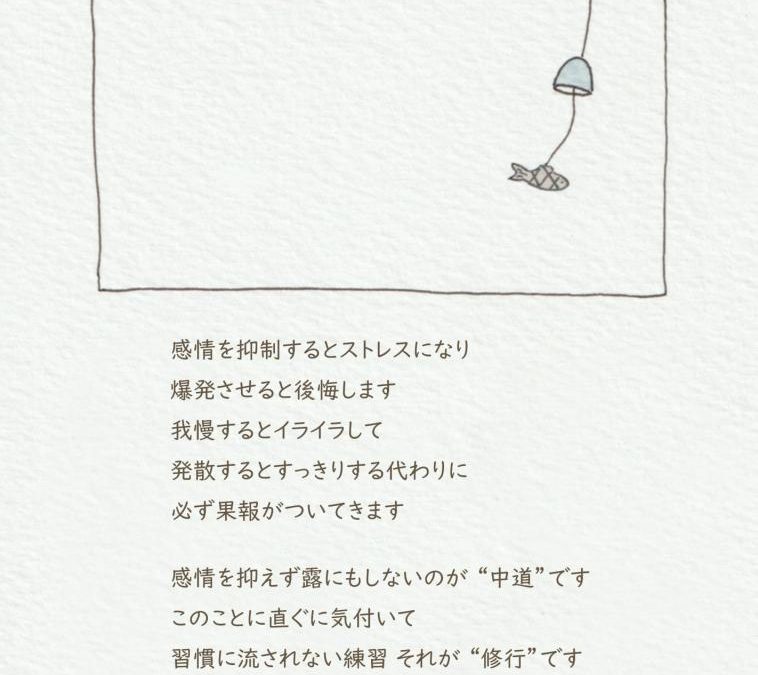 感情を抑制するとストレスになり
爆発させると後悔します
我慢するとイライラして
発散するとすっきりする代わりに
必ず果報がついてきます
感情を抑えず露にもしないのが “中道”です
このことに直ぐに気付いて
習慣に流されない練習 それが “修行”です